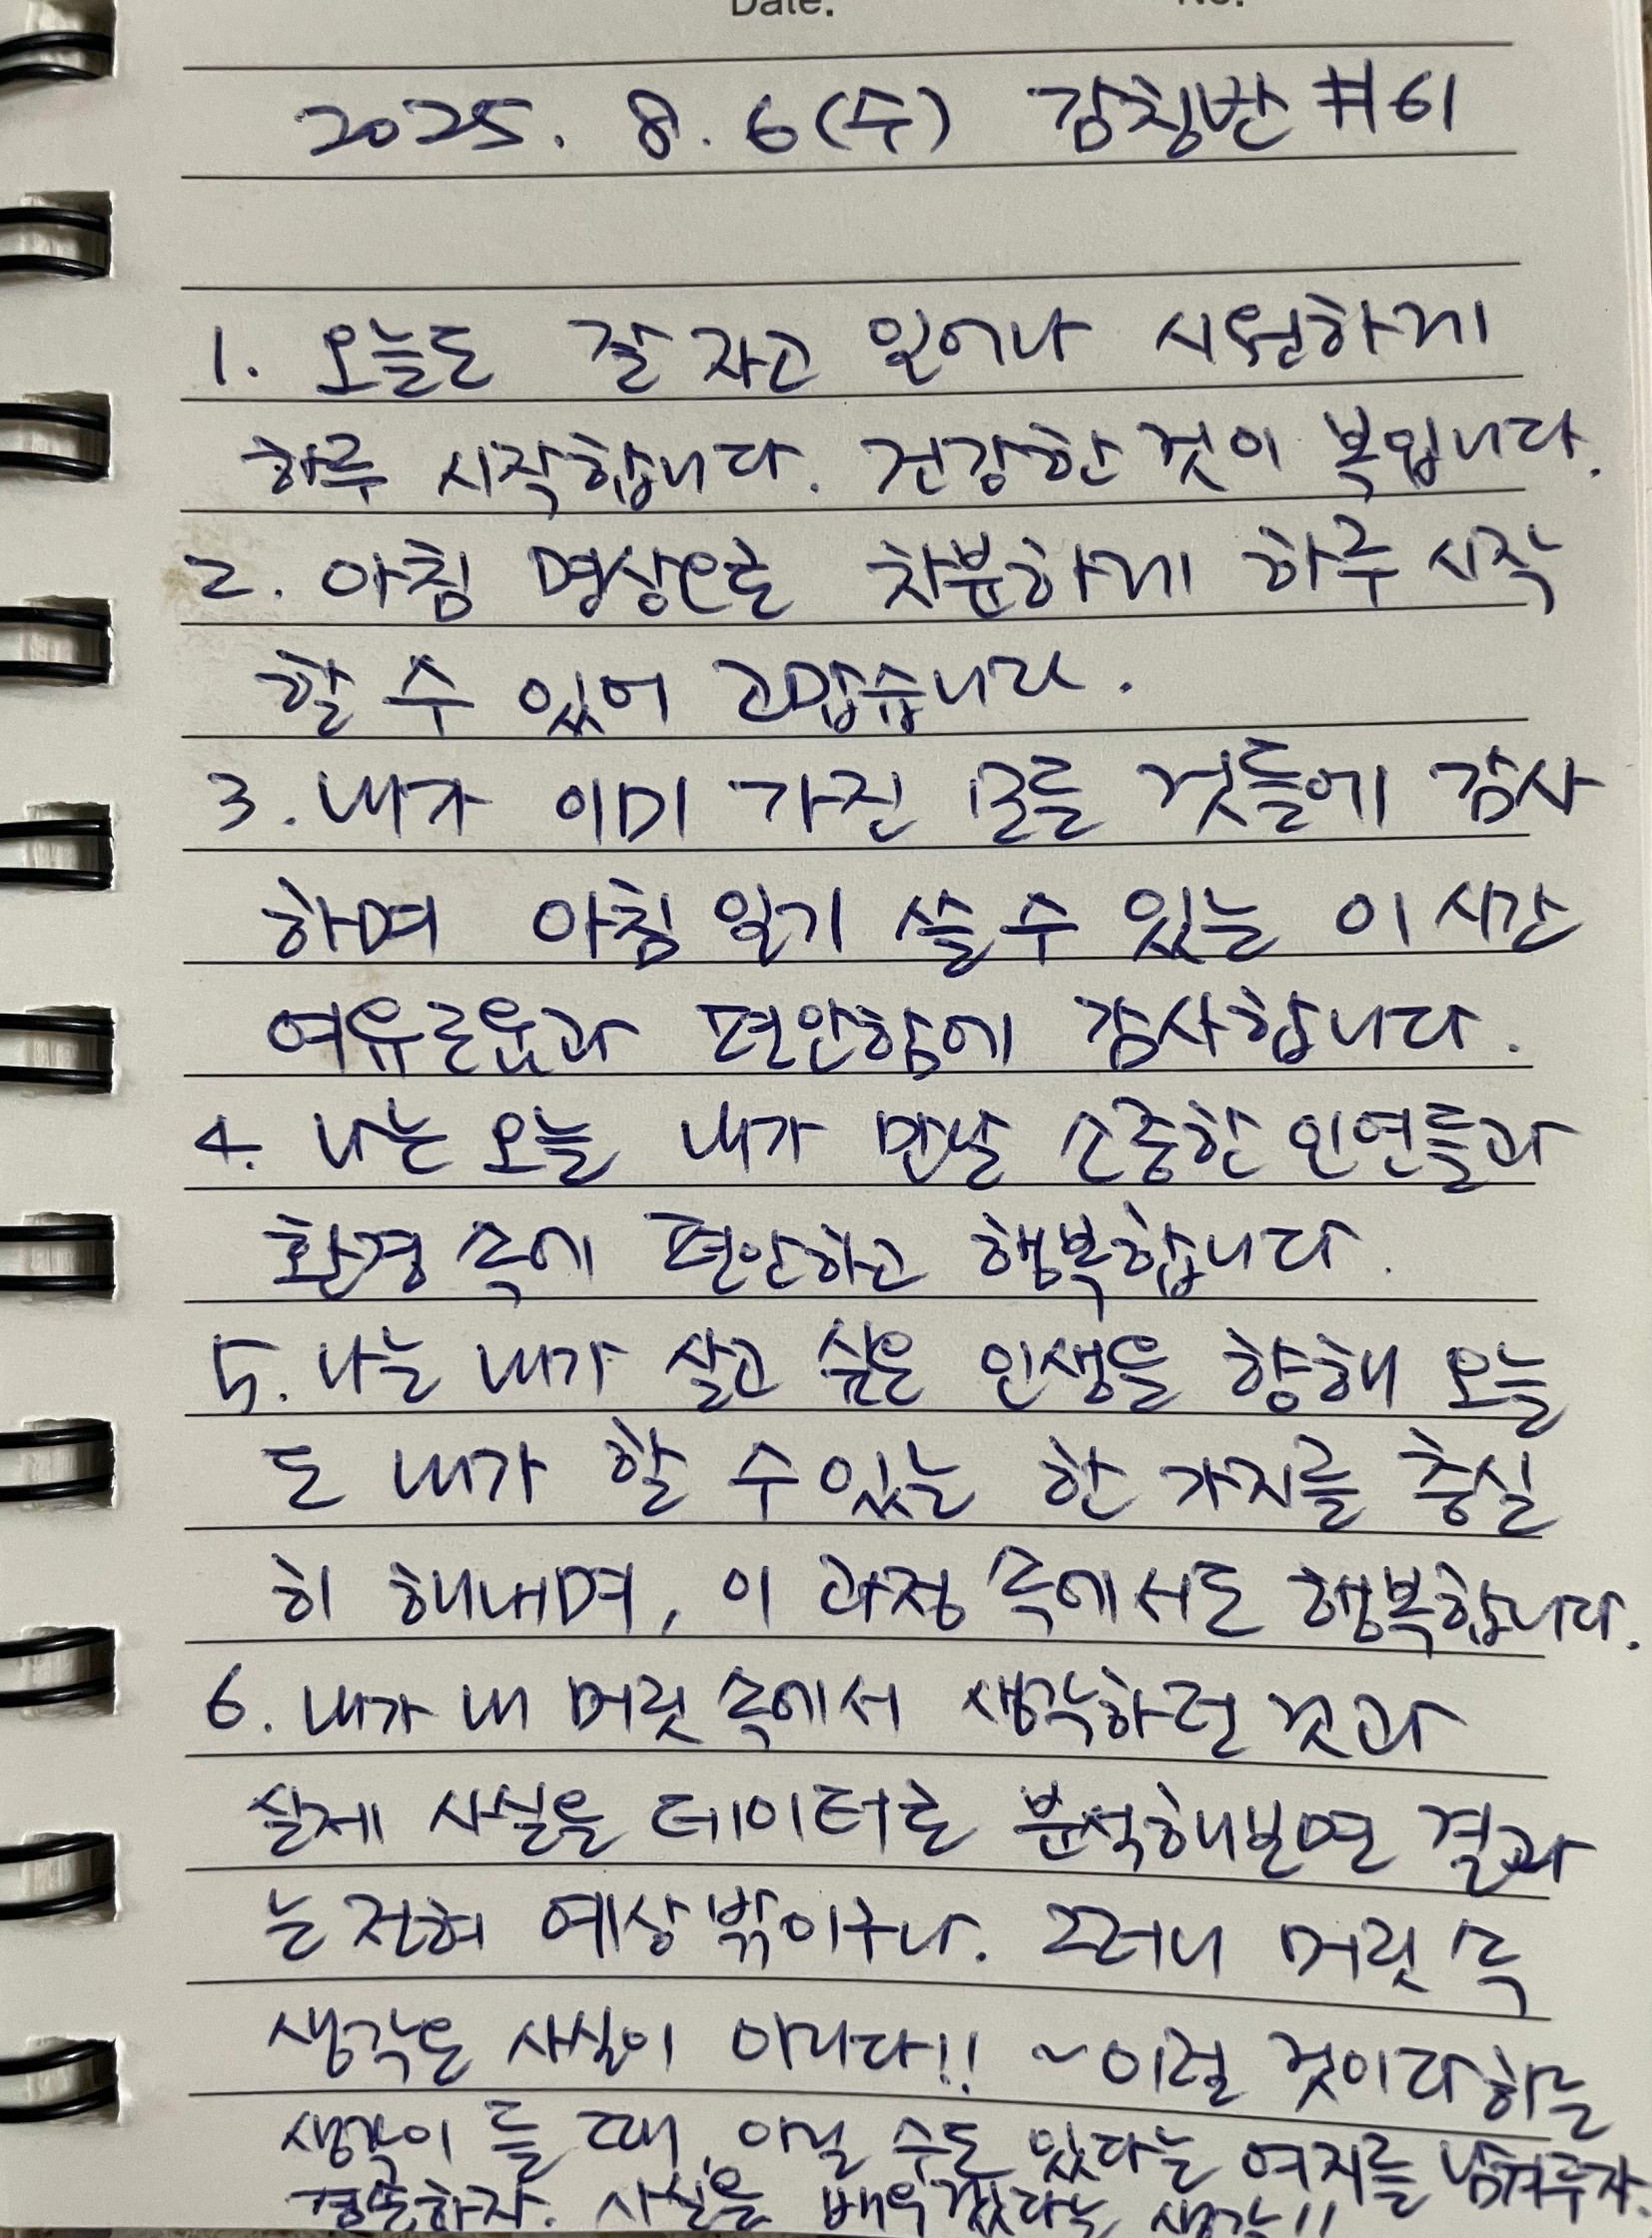 Date. No.
2025. 8. 6(수) 감칭반 #61
1. 오늘도 잘 자고 일어나 시원하게
하루 시작합니다. 건강한 것이 복입니다.
2. 아침 명상으로 차분하게 하루 시작
할 수 있어 고맙습니다.
3. 내가 이미 가진 모든 것들에 감사
하며 아침 일기 쓸 수 있는 이 시간
여유로움과 편안함에 감사합니다.
4. 나는 오늘 내가 만날 소중한 인연들과
환경 속에 편안하고 행복합니다.
5. 나는 내가 살고 싶은 인생을 향해 오늘
도 내가 할 수 있는 한 가지를 충실
히 해내며, 이 과정 속에서도 행복합니다.
6. 내가 내 머릿 속에서 생각하던 것과
실제 사실을 데이터로 분석해보면 결과
는 전혀 예상 밖이구나. 그러니 머릿 속
생각은 사실이 아니다!! ~이럴 것이다 하는
생각이 들 때, 아닐 수도 있다는 여지를 남겨두자.
겸손하자. 사실을 배우겠다는 생각!!